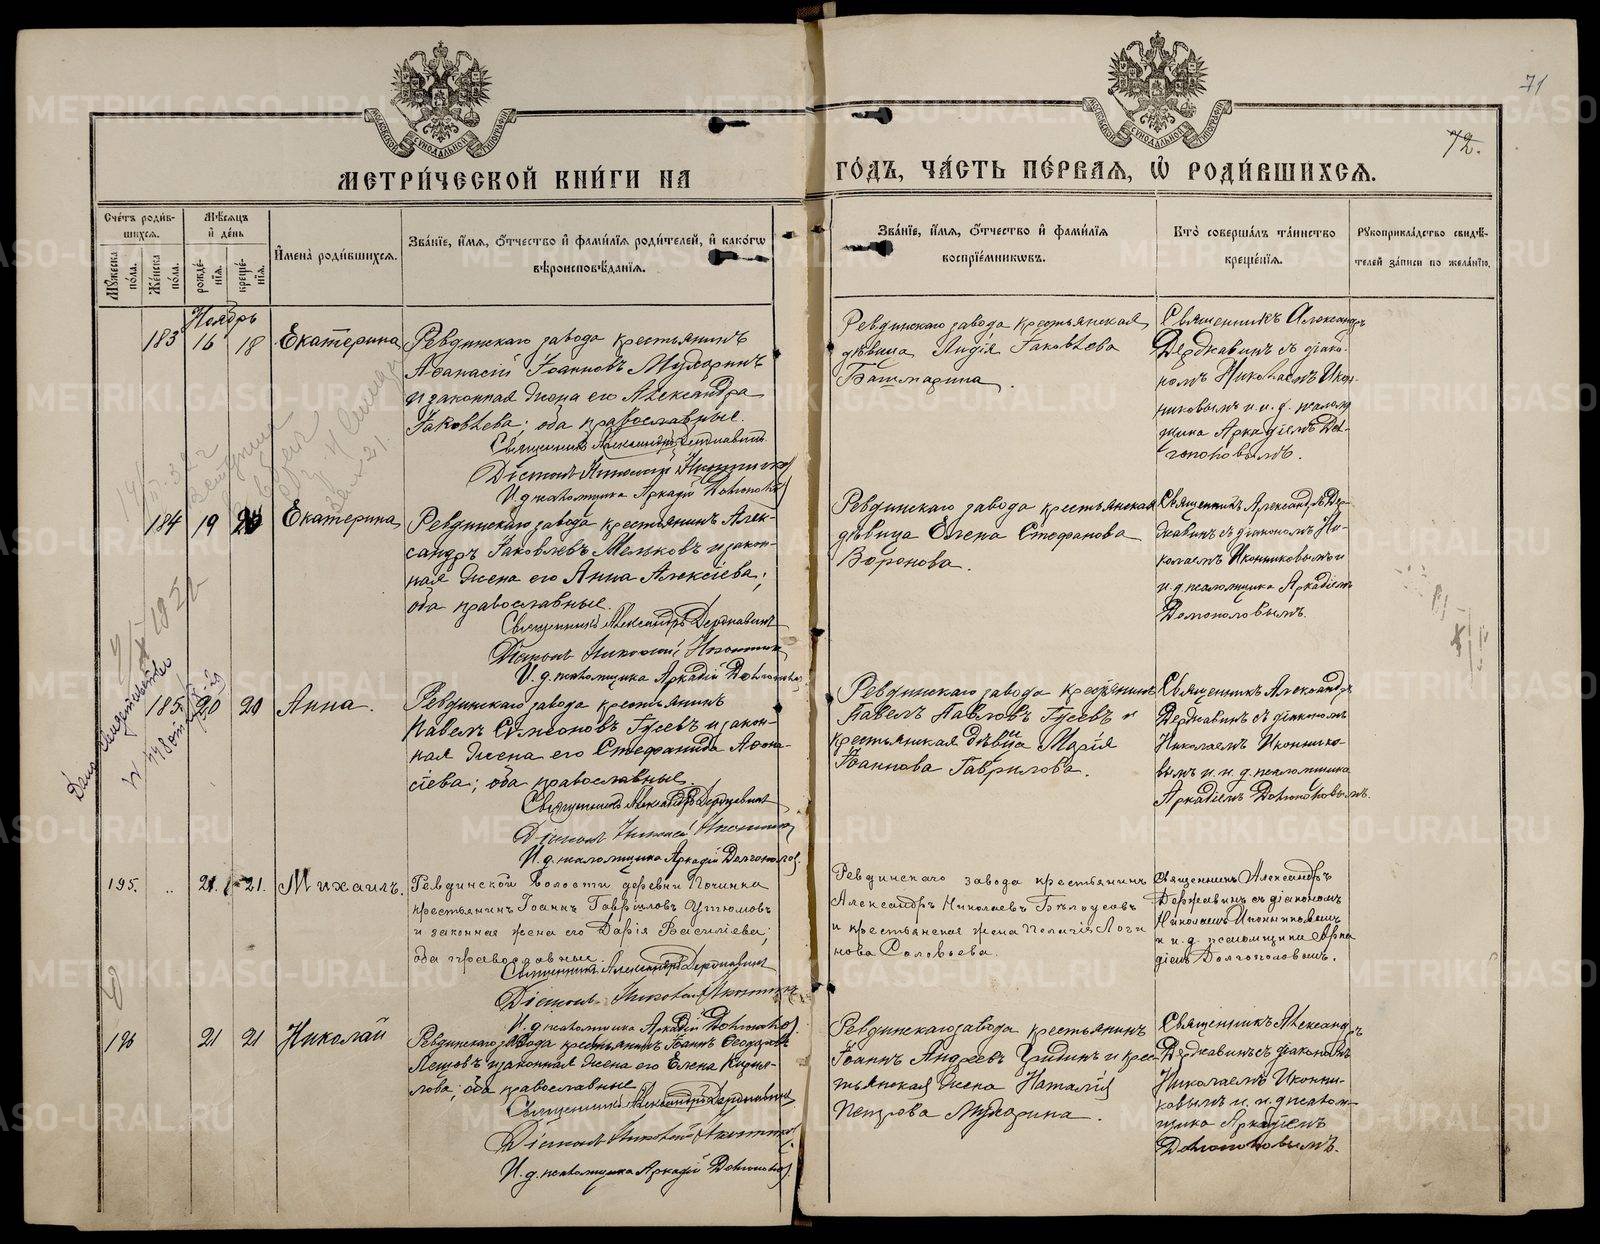 71
72.
МЕТРИ́ЧЕСКОЙ КНИ́ГИ НА
ГО́ДЪ, ЧА́СТЬ ПЕ́РВАЯ, Ѡ҆ РОДИ́ВШИХСЯ.
Сче́тъ роди́в-
шихся.
Мꙋжеска по́ла.
Же́нска по́ла.
Мѣ́сяцъ
и҆ де́нь
рожде́-
нїя.
креще́-
нїя.
И҆мена̀ роди́вшихся.
Зва́нїе, и҆́мя, ѻ҆́тчество и҆ фами́лїя роди́телей, и҆ како́гѡ
вѣроисповѣ́данїя.
Зва́нїе, и҆́мя, ѻ҆́тчество и҆ фами́лїя
воспрїе́мниковъ.
Кто̀ соверша́лъ та́инство
креще́нїя.
Рꙋкоприкла́дство свидѣ́-
телей за́писи по жела́нїю.
Ноябрь
183 16 18 Екатерина
Ревдинскаго завода крестьянинъ
Афанасій Іоанновъ Мухаринъ
и законная жена его Александра
Іаковлева; оба православные.
Священникъ Александръ Державинъ
Діаконъ Николай Иконниковъ
И. д. псаломщика Аркадій Долгополовъ
Ревдинскаго завода крестьянская
дѣвица Лидія Іаковлева
Батмарина.
Священникъ Александръ
Державинъ съ діако-
номъ Николаемъ Икон-
никовымъ и и. д. псалом-
щика Аркадіемъ Дол-
гополовымъ.
184 19 20 Екатерина
Ревдинскаго завода крестьянинъ Алек-
сандръ Іаковлевъ Мелковъ и закон-
ная жена его Анна Алексіева;
оба православные.
Священникъ Александръ Державинъ
Діаконъ Николай Иконников
И. д. псаломщика Аркадій Долгополовъ
Ревдинскаго завода крестьянская
дѣвица Елена Стефанова
Воронова.
Священникъ Александръ Дер-
жавинъ съ діакономъ Ни-
колаемъ Иконниковымъ и
и. д. псаломщика Аркадіемъ
Долгополовымъ.
Дано свидѣтельство
185 20 20 Анна.
Ревдинскаго завода крестьянинъ
Павелъ Симеоновъ Гусевъ и закон-
ная жена его Стефанида Афана-
сіева; оба православные.
Священникъ Александръ Державинъ
Діаконъ Николай Иконников
И. д. псаломщика Аркадій Долгополов.
Ревдинскаго завода крестьянинъ
Павелъ Павловъ Гусевъ и
крестьянская дѣвица Марія
Іоаннова Гаврилова.
Священникъ Александръ
Державинъ съ діакономъ
Николаемъ Иконнико-
вымъ и и. д. псаломщика
Аркадіемъ Долгополовымъ.
195. .. 21. 21. Михаилъ.
Ревдинской волости деревни Починка
крестьянинъ Іоаннъ Гавріиловъ Утюмовъ
и законная жена его Дарія Василіева;
оба православные.
Священникъ Александръ Державинъ
Діаконъ Николай Иконников
И. д. псаломщика Аркадій Долгополов.
Ревдинскаго завода крестьянинъ
Александръ Николаевъ Бѣлоусовъ
и крестьянская жена Пелагія Логи
нова Соловьева.
Священникъ Александръ
Державинъ съ діакономъ
Николаемъ Иконниковымъ
и и. д. псаломщика Арка
діемъ Долгополовымъ.
196 21 21 Николай
Ревдинскаго завода крестьянинъ Іоаннъ Ѳеодоровъ
Лещовъ и законная жена его Елена Кирил-
лова; оба православные
Священникъ Александръ Державинъ
Діаконъ Николай Иконников
И. д. псаломщика Аркадій Долгополов.
Ревдинскаго завода крестьянинъ
Іоаннъ Андреевъ Цридинъ и крес
тьянская жена Наталія
Петрова Мухарина.
Священникъ Александръ
Державинъ съ діакономъ
Николаемъ Иконни-
ковымъ и и. д. псалом-
щика Аркадіемъ
Долгополовымъ.